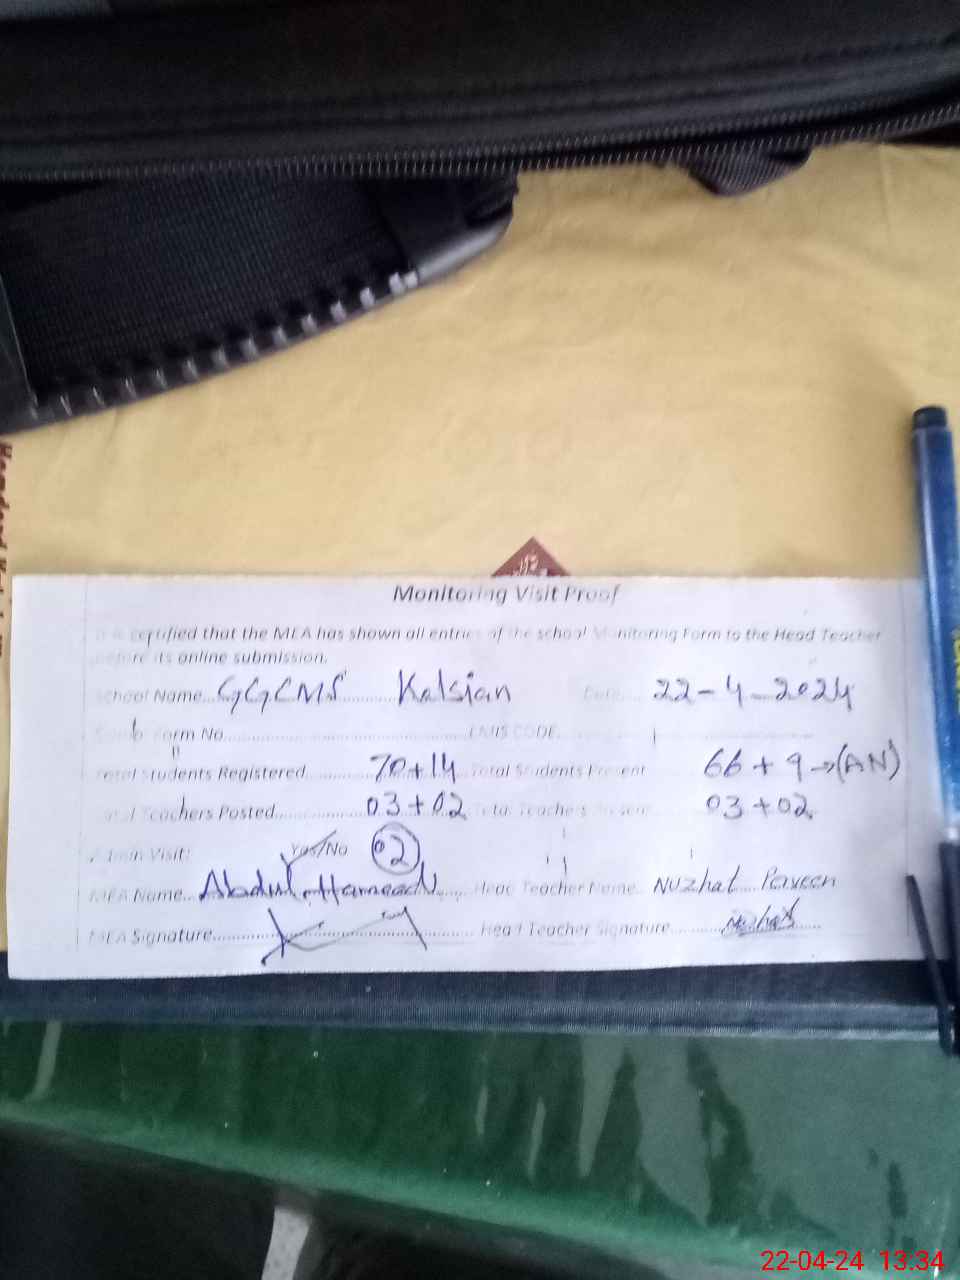 Monitoring Visit Proof
certified that the MEA has shown all entries of the school Monitoring Form to the Head Teacher
before its online submission.
School Name...GGCMS Kalsian Date 22-4-2024
Form No. EMIS CODE
Total Students Registered 70+14 Total Students Present 66+9→(AN)
Total Teachers Posted 03+02 Total Teachers Present 03+02
Admin Visit: Yes/No 02
MEA Name...Abdul Hameed Head Teacher Name Nuzhat Parveen
MEA Signature Head Teacher Signature Nuzhat
22-04-24 13:34